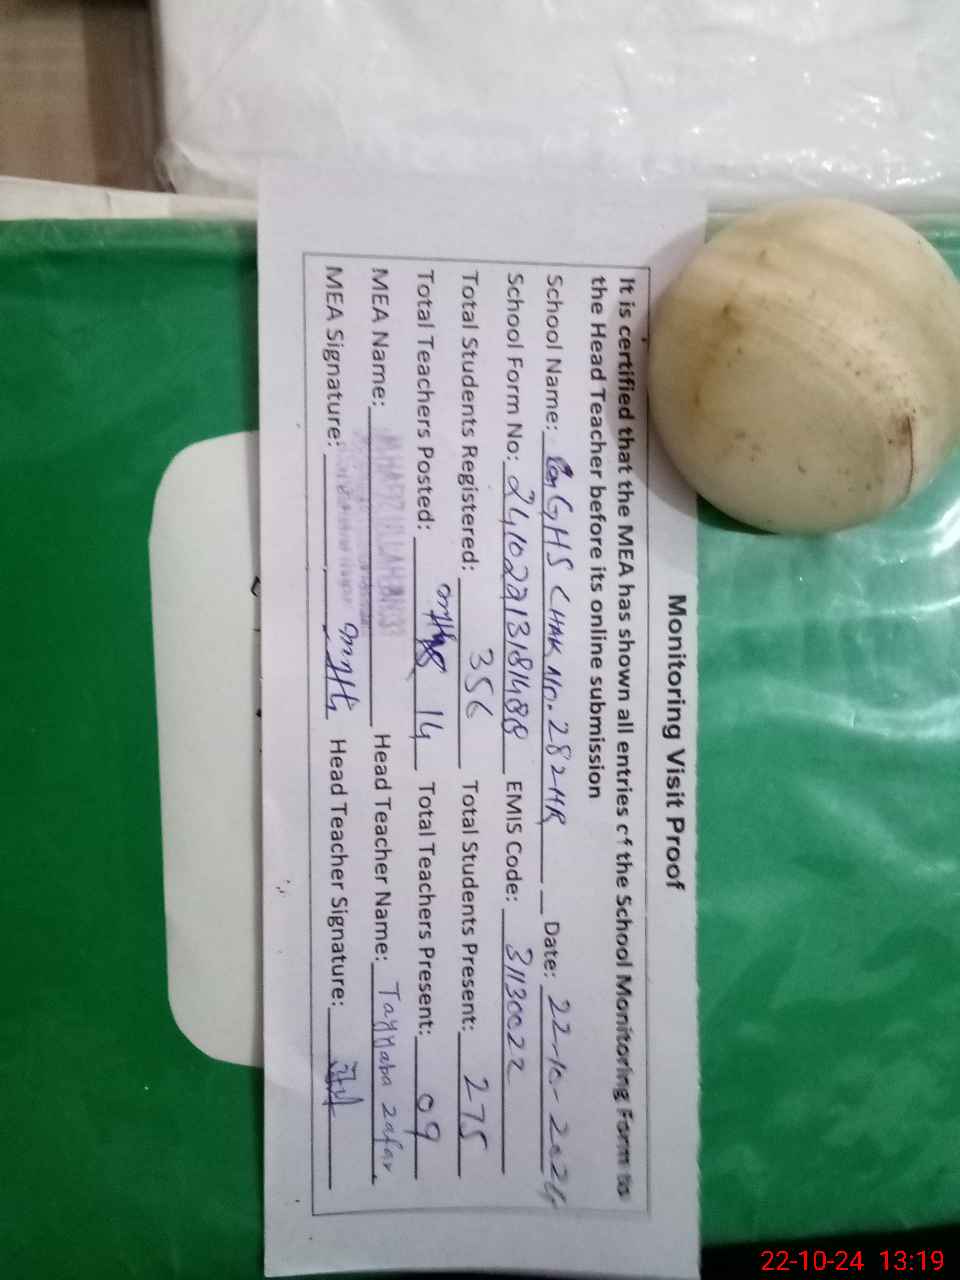 Monitoring Visit Proof
It is certified that the MEA has shown all entries of the School Monitoring Form to
the Head Teacher before its online submission
School Name: GGHS CHAK No. 282HR Date: 22-10-2024
School Form No: 24102213181488 EMIS Code: 31130022
Total Students Registered: 356 Total Students Present: 275
Total Teachers Posted: 14 Total Teachers Present: 09
MEA Name: Head Teacher Name: Tayyaba Zafar
MEA Signature: Head Teacher Signature:
22-10-24 13:19